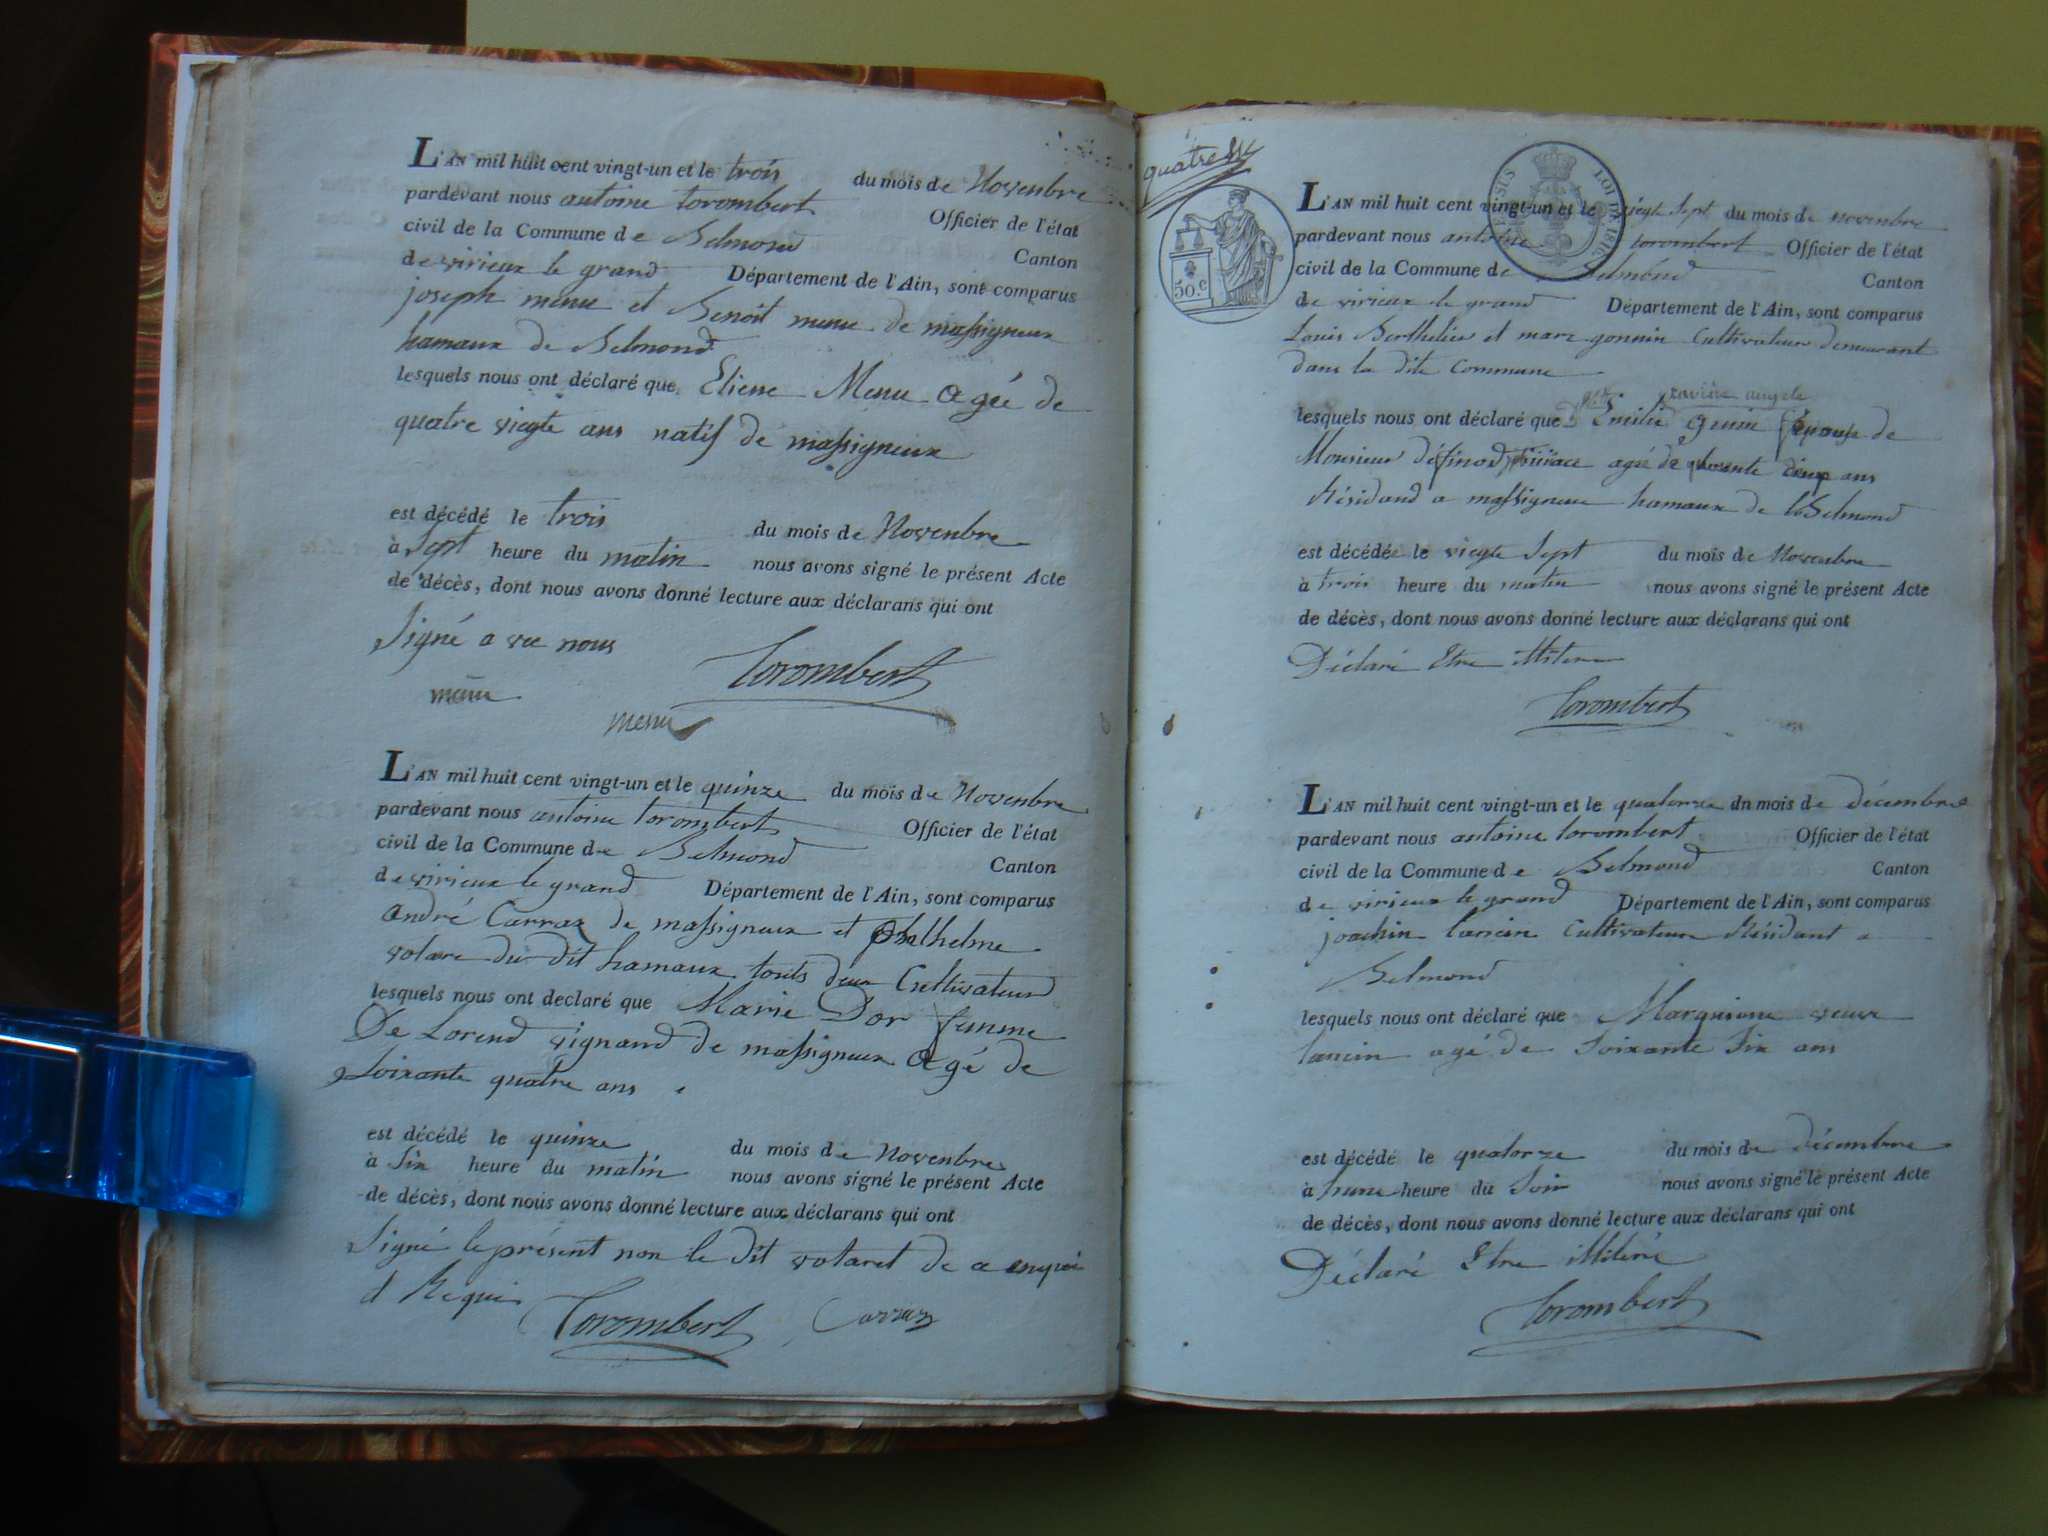 L'AN mil huit cent vingt-un et le trois du mois de Novenbre
pardevant nous antoine torombert Officier de l'état
civil de la Commune de Belmond Canton
de virieux le grand Département de l'Ain, sont comparus
joseph menu et Benoît menu de massigneux
hamaux de Belmond
lesquels nous ont déclaré que Etiene Menu agée de
quatre viegte ans natif de massigneux
est décédé le trois du mois de Novenbre
à Sept heure du matin nous avons signé le présent Acte
de décès, dont nous avons donné lecture aux déclarans qui ont
Signé a vec nous
Torombert
menu
menu
L'AN mil huit cent vingt-un et le quinze du mois de Novenbre
pardevant nous antoine torombert Officier de l'état
civil de la Commune de Belmond Canton
de virieux le grand Département de l'Ain, sont comparus
André Carraz de massigneux et anthelme
volare du dit hamaux touts deux Cultivateur
lesquels nous ont declaré que Marie Dor femme
De Lorend vignand de massigneux agé de
Soixante quatre ans
est décédé le quinze du mois de Novenbre
à Six heure du matin nous avons signé le présent Acte
de décès, dont nous avons donné lecture aux déclarans qui ont
Signé le présent non le dit volaret de a enquis
d Requis Torombert Carraz
quatre
SUS LOI DE 1816
50.c
L'AN mil huit cent vingt-un et le viegte Sept du mois de novenbre
pardevant nous antoine torombert Officier de l'état
civil de la Commune de Belmond Canton
de virieux le grand Département de l'Ain, sont comparus
Louis Berthelier et marc gonnin Cultivateur demeurant
dans la dite Commune
xavière angele
lesquels nous ont déclaré que Emilie épouse de
Monsieur agé de quarente deux ans
Résidand a massigneux hamaux de Belmond
est décédée le viegte Sept du mois de Novenbre
à trois heure du matin nous avons signé le présent Acte
de décès, dont nous avons donné lecture aux déclarans qui ont
Déclaré Etre illitere
Torombert
L'AN mil huit cent vingt-un et le quatorze dn mois de décembre
pardevant nous antoine torombert Officier de l'état
civil de la Commune de Belmond Canton
de virieux le grand Département de l'Ain, sont comparus
joachin lancin Cultivateur Résidant a
Belmond
lesquels nous ont déclaré que veuve
lancin agé de Soixante Six ans
est décédé le quatorze du mois de décembre
à hune heure du Soir nous avons signé le présent Acte
de décès, dont nous avons donné lecture aux déclarans qui ont
Déclaré Etre illiteré
Torombert